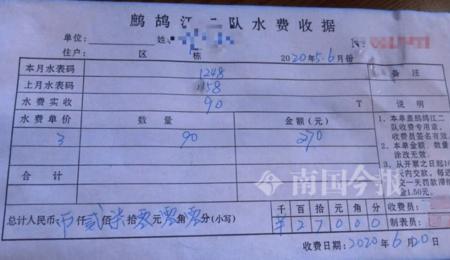 鹧鸪江二队水费收据
单位: 姓
住户: 区 栋 2020年5.6月份
本月水表码 1248 备注
上月水表码 1158
水费实收 90 T 说明
水费单价 数量 金额(元)
3 90 270
1、本单盖鹧鸪江二
队收费专用章,
收费员签名有效。
2、本单金额、数量
涂改无效。
3、从开票之日起
合计
总计人民币: 币仟贰佰柒拾零元零角零分(小写)
千百拾元角分
¥27000
收费员:
制表员:
收费日期: 2020年6月20日
南国今报